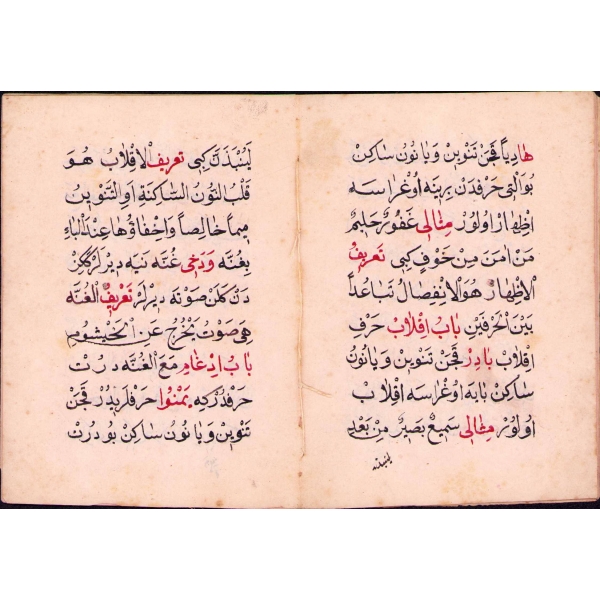 هادياً قچن تنوين و يا نون ساكن
بو التى حرفدن برينه اوغراسه
اظهار اولور مثالى غَفُورٌ حَليمٌ
مَنْ اٰمَنَ مِنْ خَوْفٍ كبى تعريف
الاظهار هُوَ الانفصال تباعداً
بَيْنَ الحرفَيْن باب اقلاب حرف
اقلاب بادر قچن تنوين و يا نون
ساكن بايه اوغراسه اقلاب
اولور مثالى سَميعٌ بَصيرٌ مِنْ بَعْدِ
لينبذن
لَيُنْبَذَنَّ كبى تعريف الاقلاب هُوَ
قلبُ النُّون السَّاكنة او التنوين
ميماً خالصاً واخفاؤها عند الباء
بغنّه و دخى غنّه نيه ديرلر گكز
دن گلن صوته ديرلر تعريف الغنّه
هى صوت يخرج عن الخيشوم
باب ادغام مع الغنّه درت
حرفدر كه يمنوا حرفلريدر قچن
تنوين و يا نون ساكن بو درت